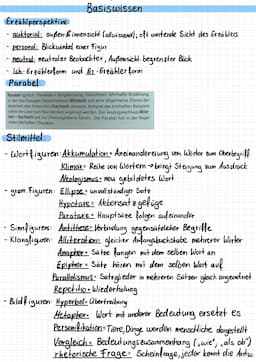 Basiswissen
Erzählperspektive
- auktorial: außen & innensicht (allwissend), oft wertende Sicht des Erzählers
- personal: Blickwinkel einer Figur
- neutral: neutraler Beobachter, Außensicht, begrenzter Blick
- Ich-Erzählform und Er-Erzählerform
Parabel
Stilmittel
- Wortfiguren: Akkumulation = Aneinanderreihung von Wörter zum Oberbegriff
Klimax: Reihe von Wörtern → bringt Steigung zum Ausdruck
Neologismus = neu gebildetes Wort
- gram. Figuren: Ellipse = unvollständiger Satz
Hypotaxe = Nebensatzgefüge
Parataxe = Hauptsätze folgen aufeinander
- Sinnfiguren: Antithese: Verbindung gegensätzlicher Begriffe
- Klangfiguren: Alliteration: gleicher Anfangsbuchstabe mehrerer Wörter
Anapher = Sätze fangen mit dem selben Wort an
Epipher = Sätze hören mit dem selben Wort auf
Parallelismus = Satzglieder in mehreren Sätzen gleich angeordnet
Repetitio = Wiederholung
- Bildfiguren: Hyperbel = Übertreibung
Metapher = Wort mit anderer Bedeutung ersetzt es
Personifikation = Tiere, Dinge werden menschliche dargestellt
Vergleich = Bedeutungszusammenhang („wie", „als ob")
rhetorische Frage = Scheinfrage, jeder kennt die Antw.